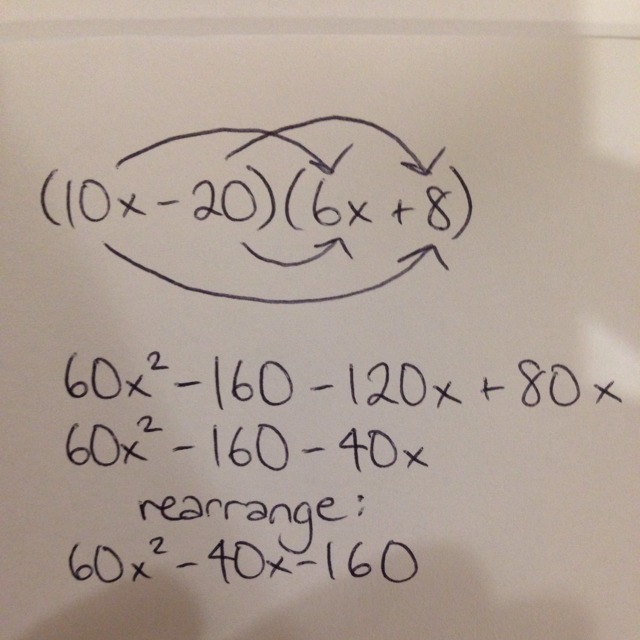 (10x - 20)(6x + 8)
60x² - 160 - 120x + 80x
60x² - 160 - 40x
rearrange:
60x² - 40x - 160